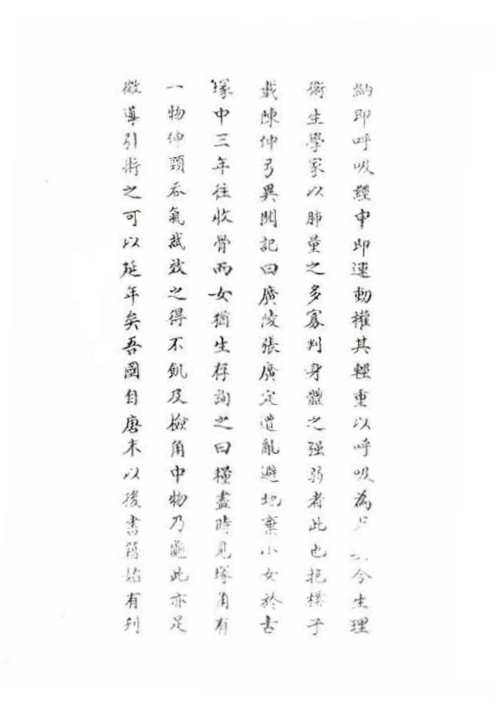 納即呼吸經申即運動權其輕重以呼吸為今生理
衛生學家以肺量之多寡判身體之强弱者此也抱樸子
載陳仲弓異聞記曰廣陵張廣定遭亂避地棄小女於古
塚中三年往收骨而女猶生存詢之曰糧盡時見塚角有
一物伸頸吞氣試效之得不飢及檢角中物乃龜此亦足
徵導引術之可以延年矣吾國自唐末以後書籍始有刊